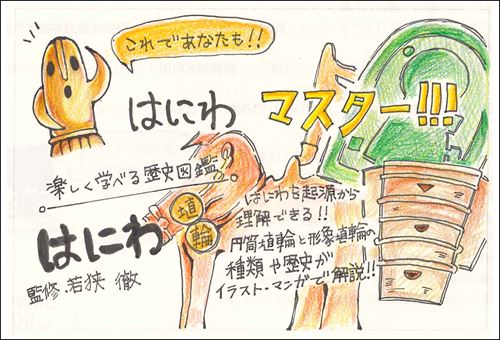 これであなたも!!
はにわ
マスター!!!
楽しく学べる歴史図鑑
はにわ
埴
輪
監修・若狭 徹
はにわを起源から
理解できる!!
円筒埴輪と形象埴輪の
種類や歴史が
イラスト・マンガで解説!!